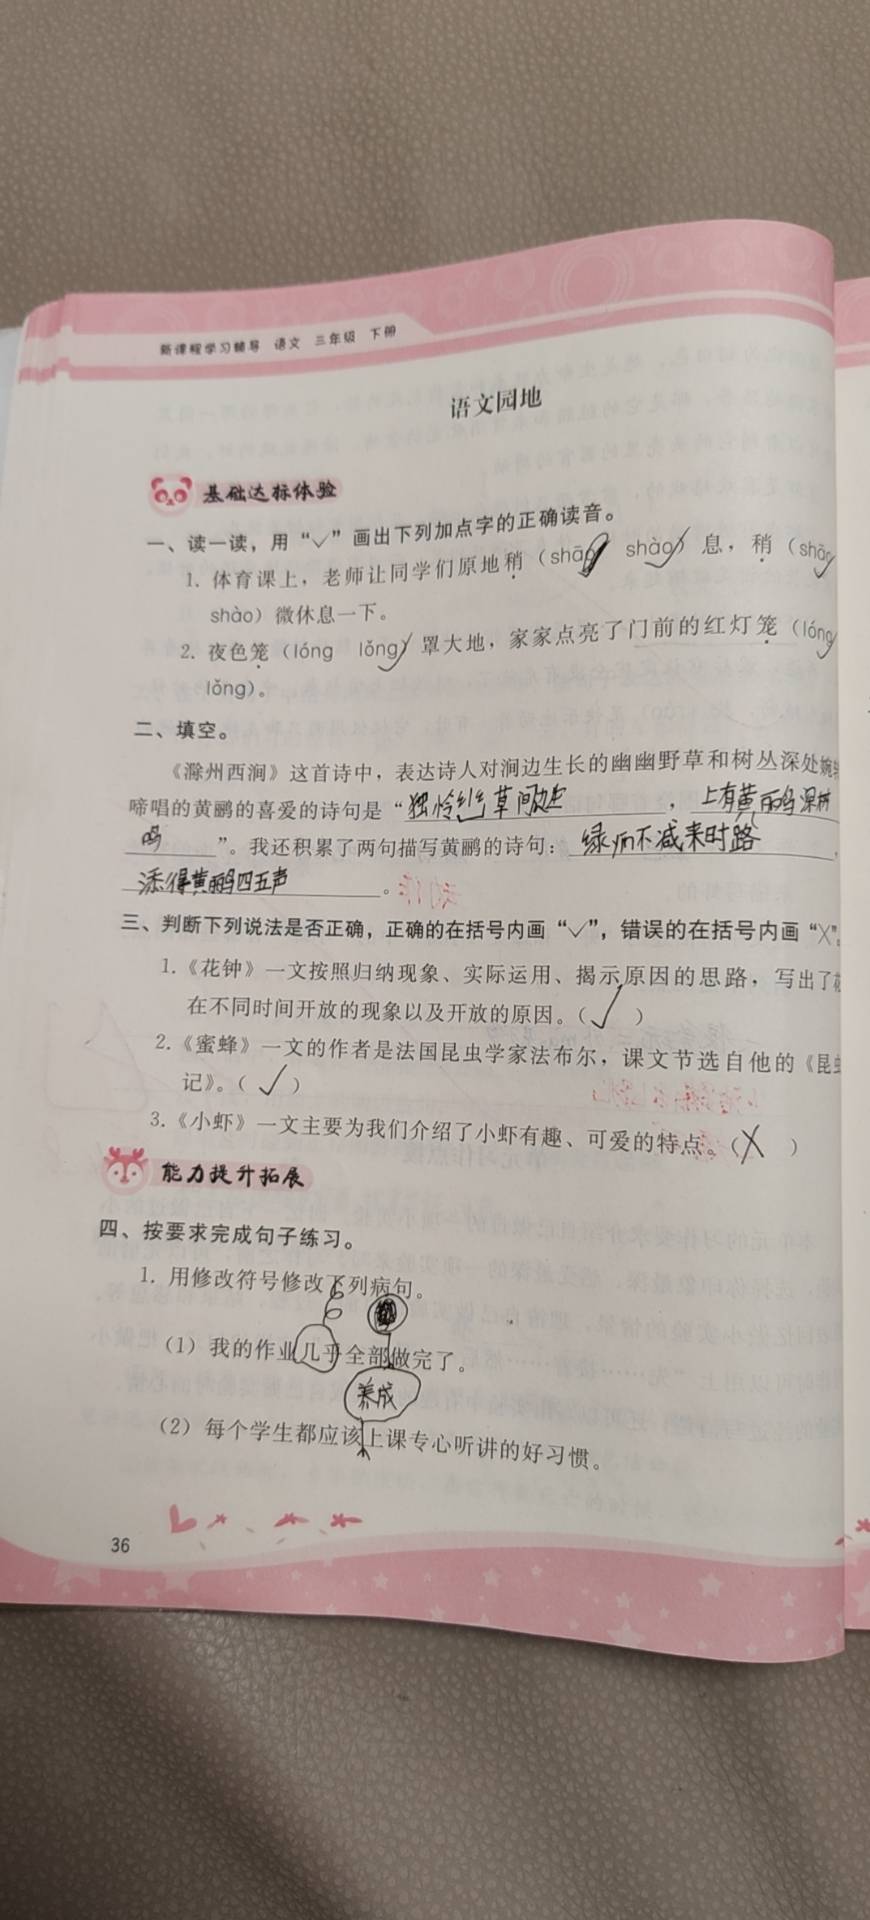 新课程学习辅导 语文 三年级 下册
语文园地
基础达标体验
一、读一读，用“✓”画出下列加点字的正确读音。
1. 体育课上，老师让同学们原地稍（shāo shào）息，稍（shāo
shào）微休息一下。
2. 夜色笼（lóng lǒng）罩大地，家家点亮了门前的红灯笼（lóng
lǒng）。
二、填空。
《滁州西涧》这首诗中，表达诗人对涧边生长的幽幽野草和树丛深处婉转
啼唱的黄鹂的喜爱的诗句是“独怜幽草涧边生，上有黄鹂深树
鸣”。我还积累了两句描写黄鹂的诗句：绿阴不减来时路，
添得黄鹂四五声。
三、判断下列说法是否正确，正确的在括号内画“✓”，错误的在括号内画“X”。
1.《花钟》一文按照归纳现象、实际运用、揭示原因的思路，写出了
在不同时间开放的现象以及开放的原因。（✓）
2.《蜜蜂》一文的作者是法国昆虫学家法布尔，课文节选自他的《昆虫
记》。（✓）
3.《小虾》一文主要为我们介绍了小虾有趣、可爱的特点。（X）
能力提升拓展
四、按要求完成句子练习。
1. 用修改符号修改下列病句。
（1）我的作业几乎全部做完了。
养成
（2）每个学生都应该上课专心听讲的好习惯。
36